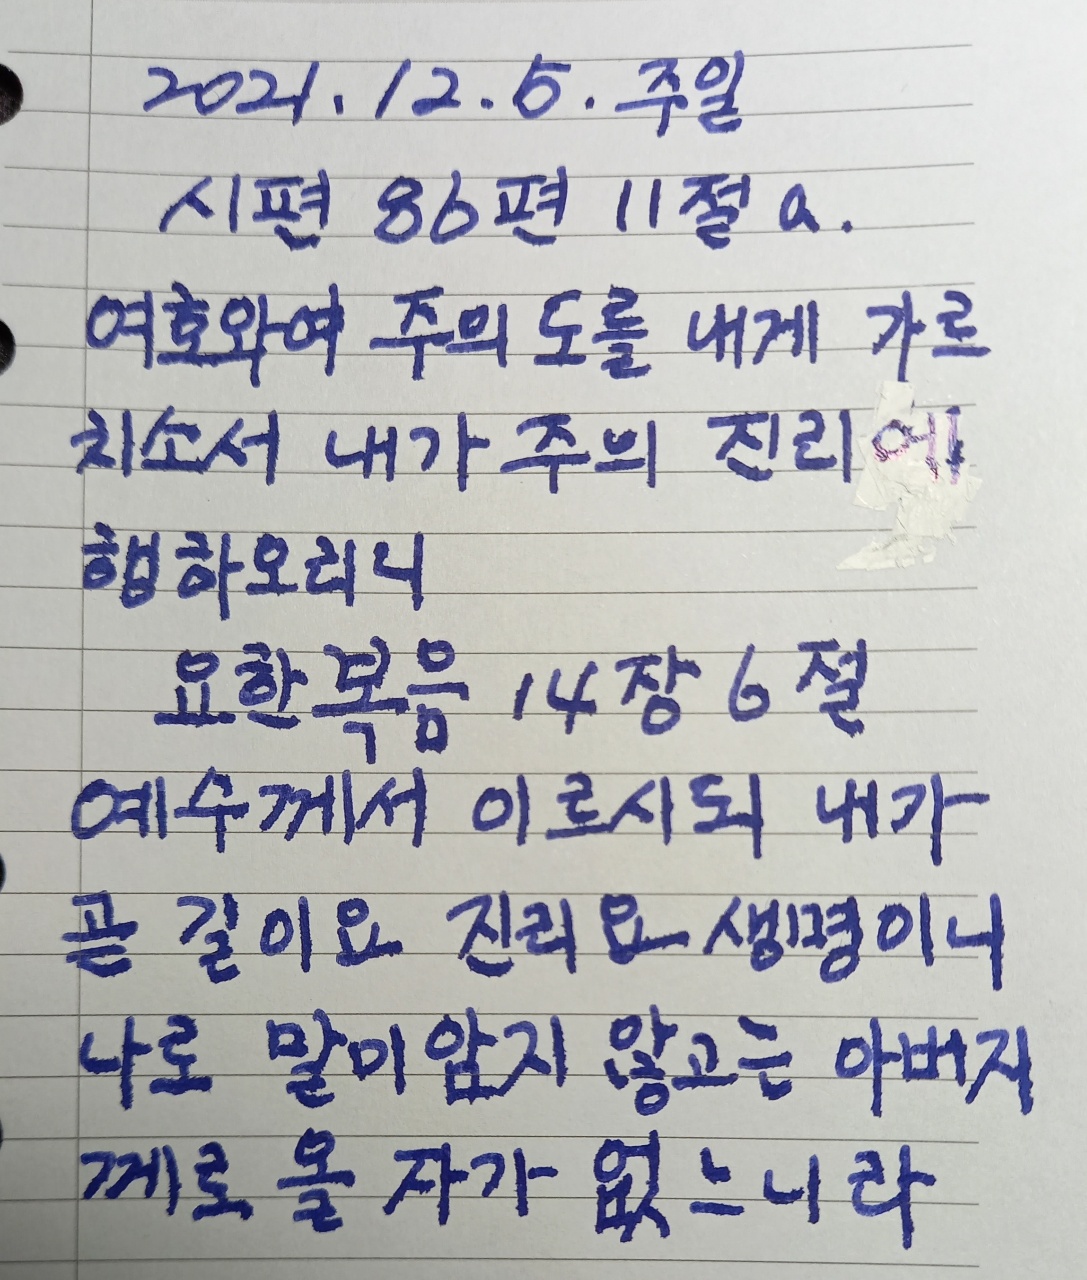 2021.12.5. 주일
시편 86편 11절 a.
여호와여 주의 도를 내게 가르
치소서 내가 주의 진리에
행하오리니
요한복음 14장 6절
예수께서 이르시되 내가
곧 길이요 진리요 생명이니
나로 말미암지 않고는 아버지
께로 올 자가 없느니라